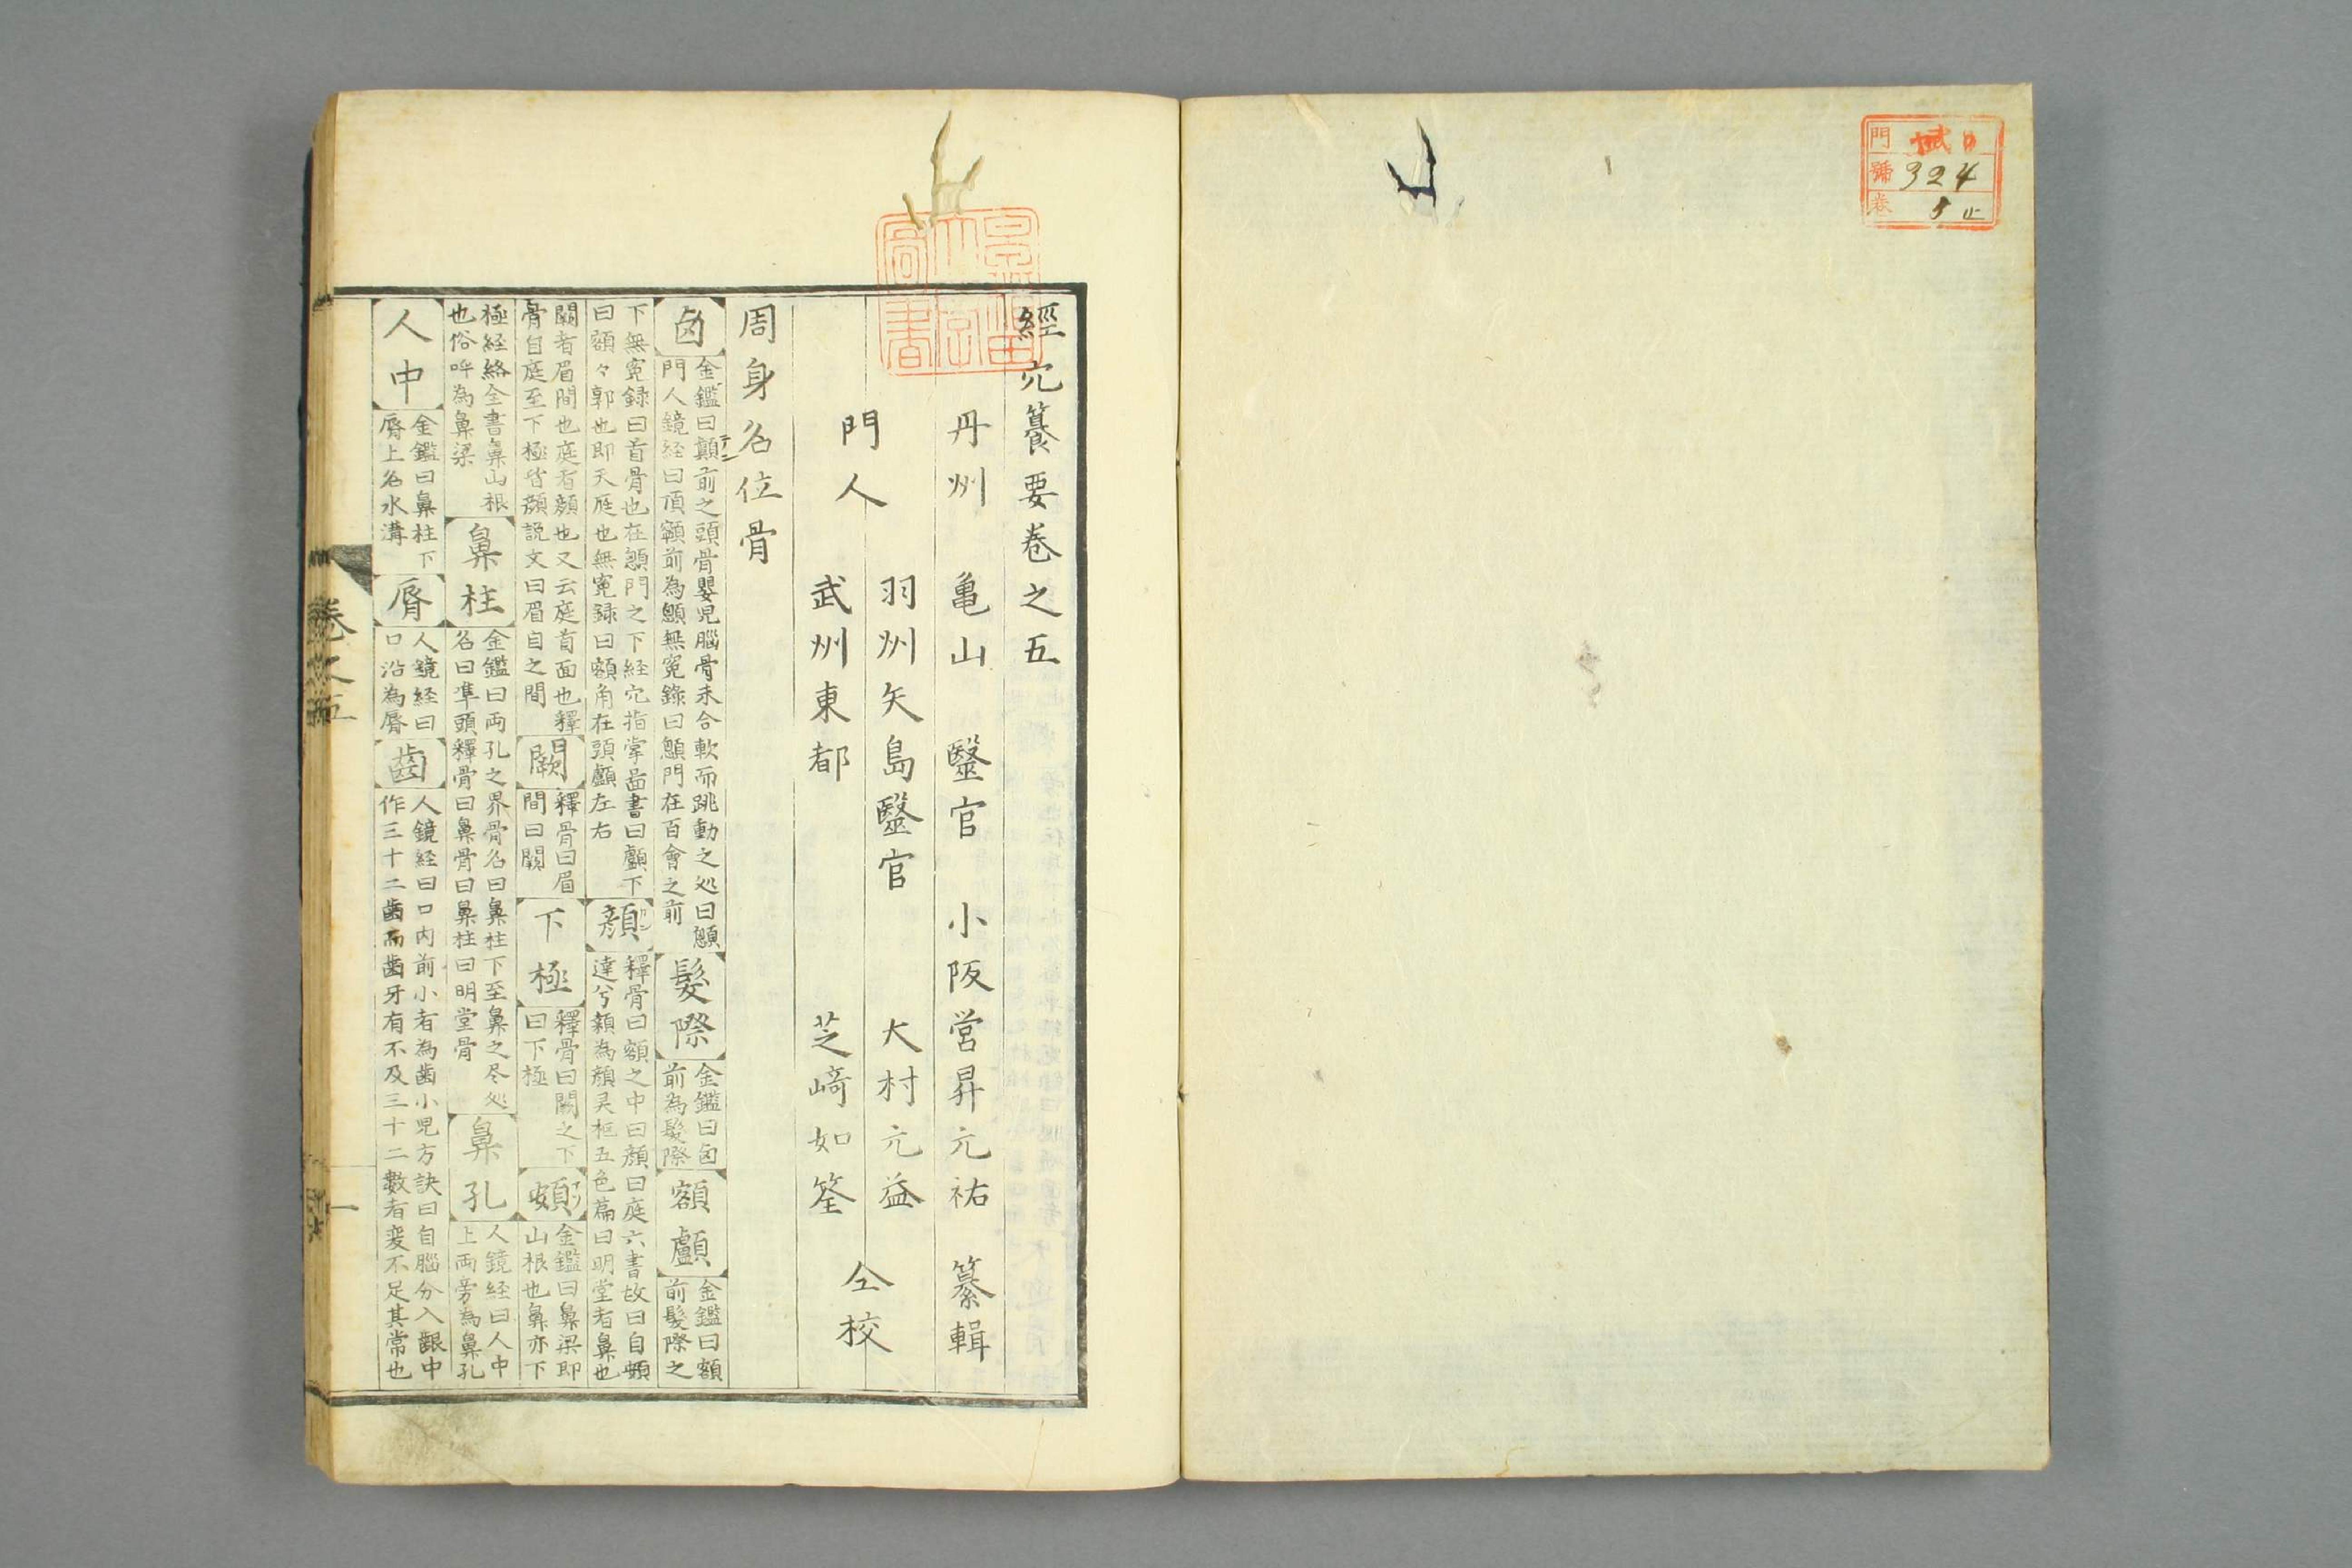 門
號 324
卷 5 止
經穴籑要卷之五
丹州 亀山 毉官 小阪営昇元祐 纂輯
門人 羽州矢島毉官 大村元益 仝校
武州東都 芝﨑如筌
周身名位骨
囟 金鑑曰顛前之頭骨嬰児腦骨未合軟而跳動之処曰顖
門人鏡経曰頂額前為顖無寃錄曰顖門在百會之前
髮際 金鑑曰囟
前為髮際
額顱 金鑑曰額
前髮際之
下無寃録曰首骨也在顖門之下経穴指掌啚書曰顱下
曰額々郭也即天庭也無寃録曰額角在頭顱左右
顔 釋骨曰額之中曰顔曰庭六書故曰自頞
達兮額為顔灵枢五色篇曰明堂者鼻也
闕者眉間也庭者顔也又云庭首面也釋
骨自庭至下極皆顔説文曰眉目之間
闕 釋骨曰眉
間曰闕
下極 釋骨曰闕之下
曰下極
頞 金鑑曰鼻梁即
山根也鼻亦下
極経絡全書鼻山根
也俗呼為鼻梁
鼻柱 金鑑曰両孔之界骨名曰鼻柱下至鼻之尽処
名曰準頭釋骨曰鼻骨曰鼻柱曰明堂骨
鼻孔 人鏡経曰人中
上両旁為鼻孔
人中 金鑑曰鼻柱下
脣上名水溝
脣 人鏡経曰
口沿為脣
齒 人鏡経曰口内前小者為齒小児方訣曰自腦分入齦中
作三十二齒而齒牙有不及三十二數者変不足其常也
卷之五
一